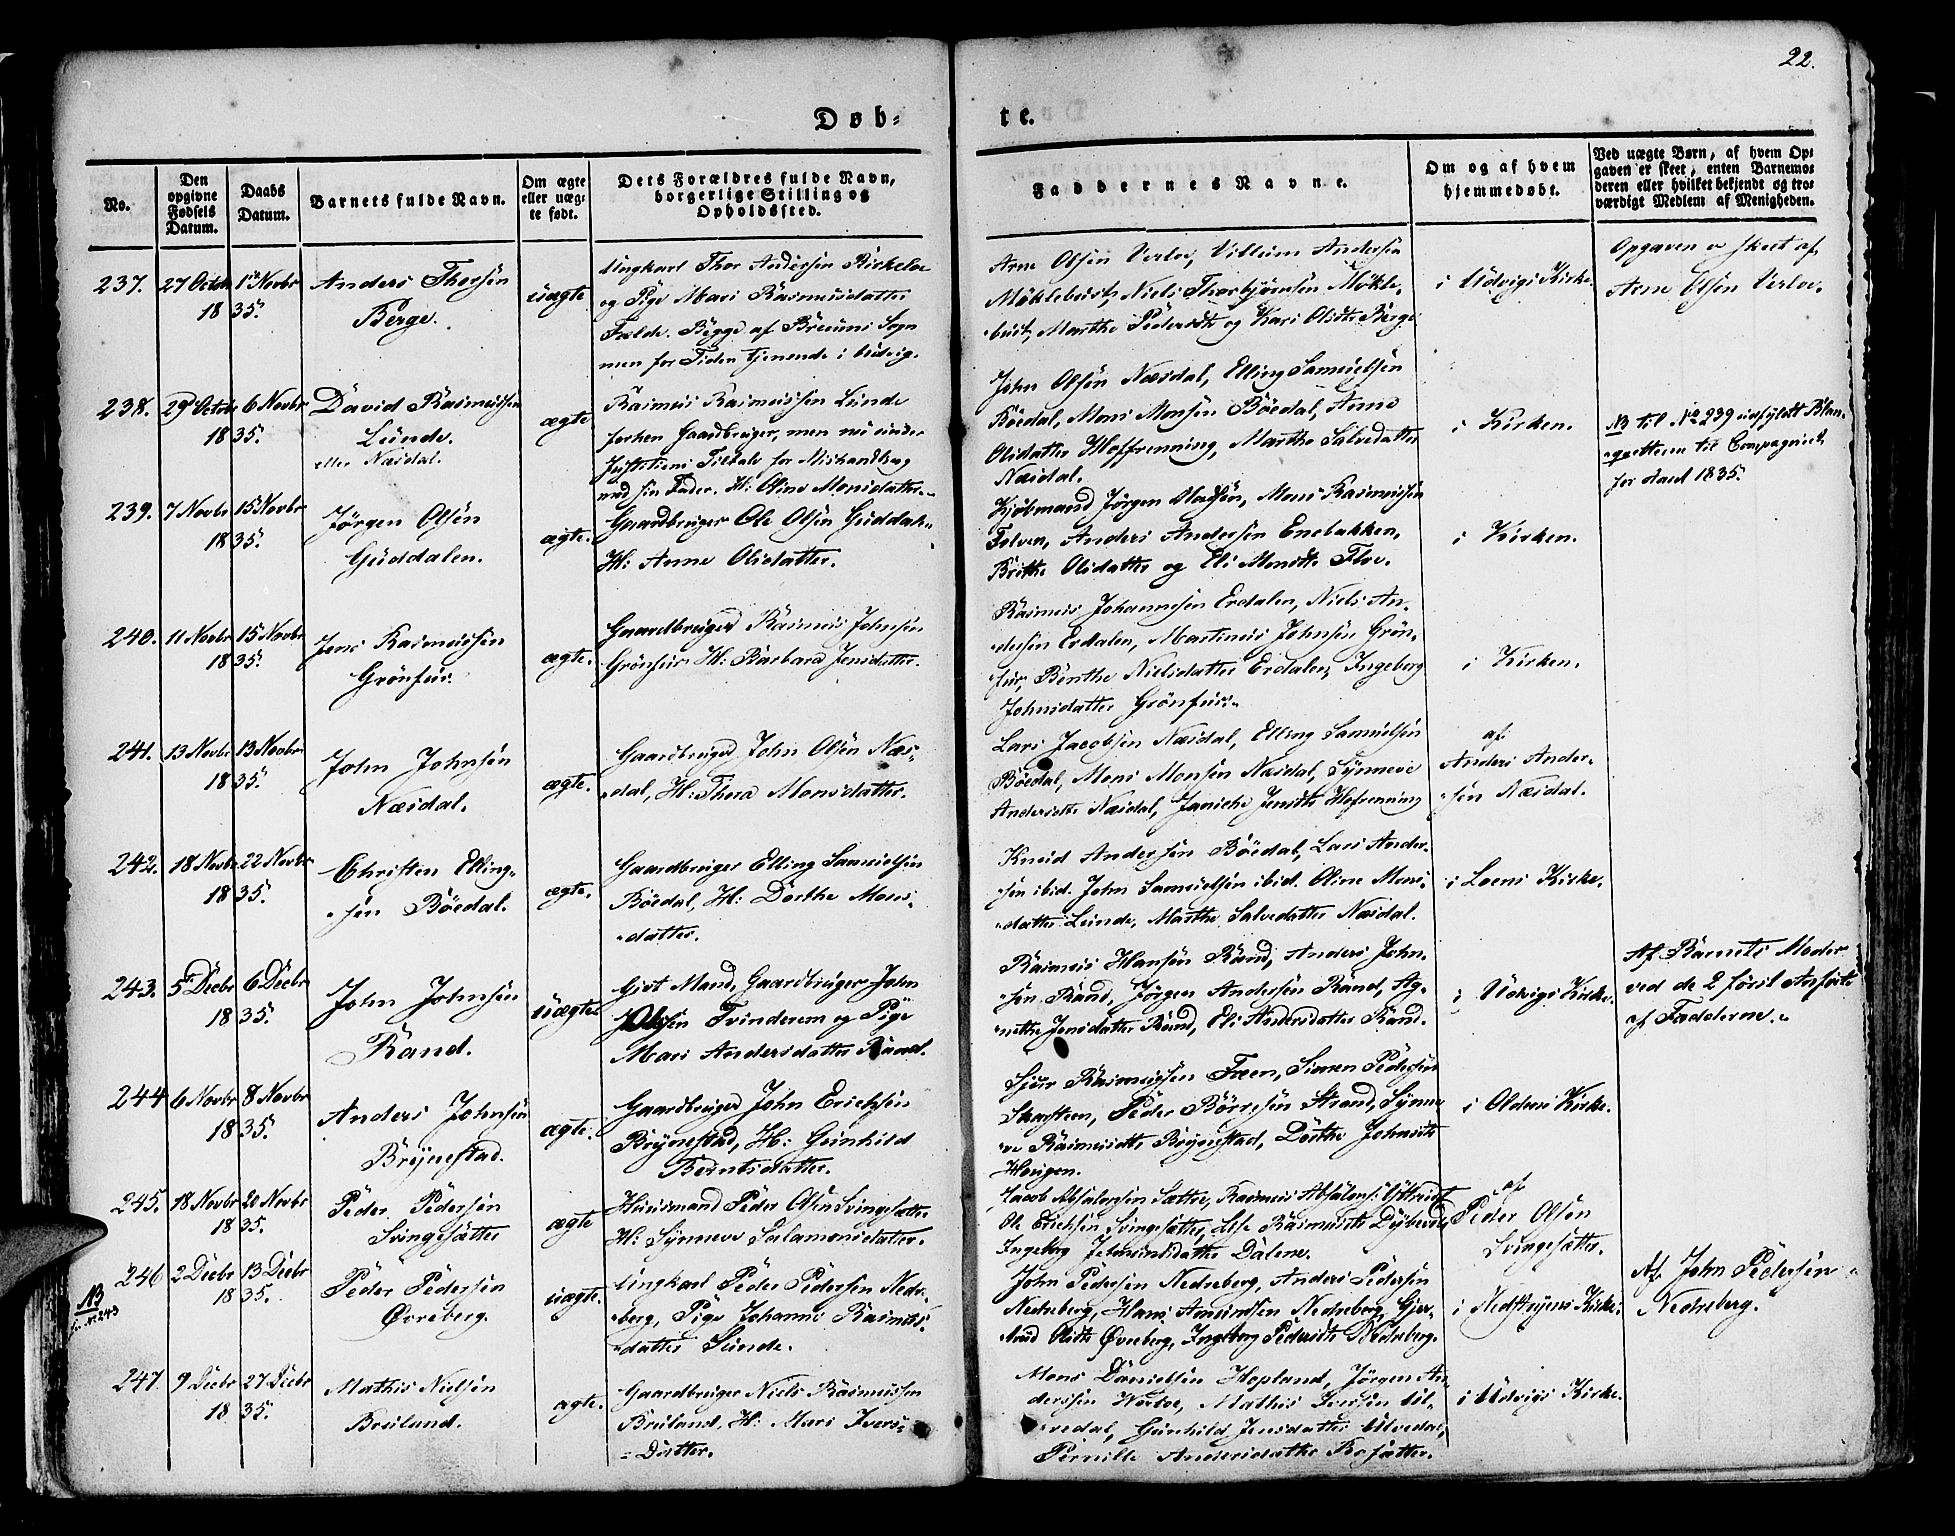 22.
Døb-
te.
No.
Den opgivne Fødsels Datum.
Daabs Datum.
Barnets fulde Navn.
Om ægte eller uægte født.
Dets Forældres fulde Navn, borgerlige Stilling og Opholdssted.
Faddernes Navne.
Om og af hvem hjemmedøbt.
Ved uægte Børn, af hvem Opgaven er skeet, enten Barnemoderen eller hvilket bekjendt og troværdigt Medlem af Menigheden.
237. 27 Octob 1ste Novbr 1835.
Anders Thorsen
Berge.
uægte
Ungkarl Thor Andersen
og Pige Mari Rasmusdatter
Felde. Begge af Breums Sogn
men for Tiden tjenende i Udvig.
Arne Olsen Verlo, Villum Andersen
Möklebust, Niels Thorbjörnsen Mökle-
bust, Marthe Pedersdtr og Kari Olsdtr Berge
i Udvigs Kirke.
Opgaven er skeet af
Arne Olsen Verloe.
238. 29de Octob 6 Novbr 1835.
David Rasmussen
Lunde.
eller Næsdal.
ægte
Rasmus Rasmussen Lunde
forhen Gaardbruger, men nu under
Justitiens Tiltale for Mishandling
mod sin Fader. H: Oline Monsdatter.
John Olsen Næsdal, Elling Samuelsen
Böedal, Mons Monsen Böedal, Anne
Olsdatter Hoffrenning, Marthe Salvedatter
Næsdal.
i Kirken.
NB til No 239 indfyldt
til Compagniet
for aaret 1835.
239. 7 Novbr 15 Novbr 1835.
Jørgen Olsen
Guddalen.
ægte.
Gaardbruger Ole Olsen Guddal-
H: Anne Olsdatter.
Kjöbmand Jörgen Madsen, Mons Rasmussen
Folven, Anders Andersen Enebakken,
Brithe Olsdatter og Eli Monsdtr Floe.
i Kirken.
240. 11 Novbr 15 Novbr 1835.
Jens Rasmussen
Grönfur.
ægte.
Gaardbruger Rasmus Johnsen
Grönfur H: Barbara Jensdatter.
Rasmus Johannesen Erdalen, Niels An-
dersen Erdalen, Martinus Johnsen Grön-
fur, Benthe Nielsdatter Erdalen, Ingeborg
Johnsdatter Grönfur.
i Kirken.
241. 13 Novbr 13 Novbr 1835.
John Johnsen
Næsdal.
ægte.
Gaardbruger John Olsen Næs-
dal, H: Thora Monsdatter.
Lars Jacobsen Næsdal, Elling Samuelsen
Böedal, Mons Monsen Næsdal, Synneve
Andersdtr Næsdal, Janiche Jensdtr Hofrenning
af
Anders Ander-
sen Næsdal.
242. 18 Novbr 22 Novbr 1835.
Christen Elling-
sen Böedal.
ægte.
Gaardbruger Elling Samuelsen
Böedal, H: Dorthe Mons-
datter.
Knud Andersen Böedal, Lars Ander-
sen ibid. John Samuelsen ibid. Oline Mons-
datter Lunde, Marthe Salvedatter Næsdal.
i Loens Kirke.
243. 5te Decbr 6 Decbr 1835.
John Johnsen
Rand.
uægte
Gift Mand, Gaardbruger John
Olsen Tvinderem og Pige
Mari Andersdatter Rand.
Rasmus Hansen Rand, Anders John-
sen Rand, Jörgen Andersen Rand, Ag-
nethe Jensdatter Rand, Eli Andersdatter Rand.
i Udvigs Kirke.
Af Barnets Moder
ved de 2 först Anförte
af Fadderne.
244 6 Novbr 8 Novbr 1835.
Anders Johnsen
Brynestad.
ægte.
Gaardbruger John Erichsen
Brynestad, H: Gunhild
Berntsdatter.
Sjur Rasmussen Faen, Simen Pedersen
Skarsteen, Peder Börresen Strand, Synne-
ve Rasmusdtr Brynestad, Dorthe Johnsdtr
Horigen.
i Oldens Kirke.
245. 18 Novbr 20 Novbr 1835.
Peder Pedersen
Svingesætter
ægte
Huusmand Peder Olsen Svingesætter
H: Synneve Salamonsdatter.
Jacob Absalonsen Sætre, Rasmus Absalons:
Ole Erichsen Svingesætter, Lise Rasmusdtr
Ingeborg Dalene.
af
Peder Olsen
Svingesætter.
246 2 Decbr 13 Decbr 1835.
NB
243
Peder Pedersen
Øvreberg.
uægte.
Ungkarl Peder Pedersen Nedre-
berg, Pige Johanne Rasmus-
datter Lunde.
John Pedersen Nedreberg, Anders Pedersen
Nedreberg, Hans Amundsen Nedreberg, Gjer-
trud Olsdtr Øvreberg, Ingeborg Pedersdtr Nedreberg.
i Nedstryens Kirke.
Af John Pedersen
Nedreberg.
247. 9 Decbr 27 Decbr 1835.
Mathis Nielsen
Bruland.
ægte.
Gaardbruger Niels Rasmussen
Bruland, H: Mari Ivers-
Datter.
Mons Danielsen Hopland, Jörgen An-
derssen Mathis Iversen Ul-
vedal, Gunhild Jensdatter Ulvedal,
Pernille Andersdatter
i Udvigs Kirke.